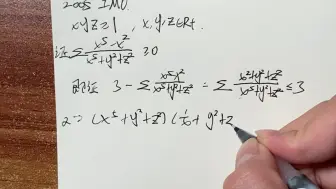 2005 IMO.
xyz≥1, x,y,z∈R+.
证 ∑ (x⁵-x²)/(x⁵+y²+z²) ≥0
即证 3-∑ (x⁵-x²)/(x⁵+y²+z²) = ∑ (x²+y²+z²)/(x⁵+y²+z²) ≤3
(x⁵+y²+z²)(1/x+y²+z